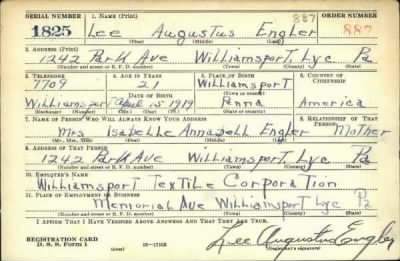 SERIAL NUMBER 1. NAME (Print) 887 ORDER NUMBER
1825 Lee Augustus Engler 887
(First) (Middle) (Last)
2. ADDRESS (Print)
1242 Park Ave Williamsport, Lyc Pa
(Number and street or R. F. D. number) (Town) (County) (State)
3. TELEPHONE 4. AGE IN YEARS 5. PLACE OF BIRTH 6. COUNTRY OF CITIZENSHIP
7709 21 Williamsport
DATE OF BIRTH (Town or county)
Williamsport April 15 1919 Penna America
(Exchange) (Number) (Mo.) (Day) (Yr.) (State or country)
7. NAME OF PERSON WHO WILL ALWAYS KNOW YOUR ADDRESS 8. RELATIONSHIP OF THAT PERSON
Mrs Isabelle Annabell Engler Mother
(Mr., Mrs., Miss) (First) (Middle) (Last)
9. ADDRESS OF THAT PERSON
1242 Park Ave Williamsport Lyc Pa
(Number and street or R. F. D. number) (Town) (County) (State)
10. EMPLOYER'S NAME
Williamsport Textile Corporation
11. PLACE OF EMPLOYMENT OR BUSINESS
Memorial Ave Williamsport Lyc Pa
(Number and street or R. F. D. number) (Town) (County) (State)
I AFFIRM THAT I HAVE VERIFIED ABOVE ANSWERS AND THAT THEY ARE TRUE.
REGISTRATION CARD
D. S. S. Form 1 16-17105 Lee Augustus Engler
(Registrant's signature)